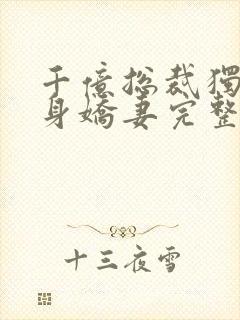 千億总裁獨
身嬌妻完整
十三夜雪